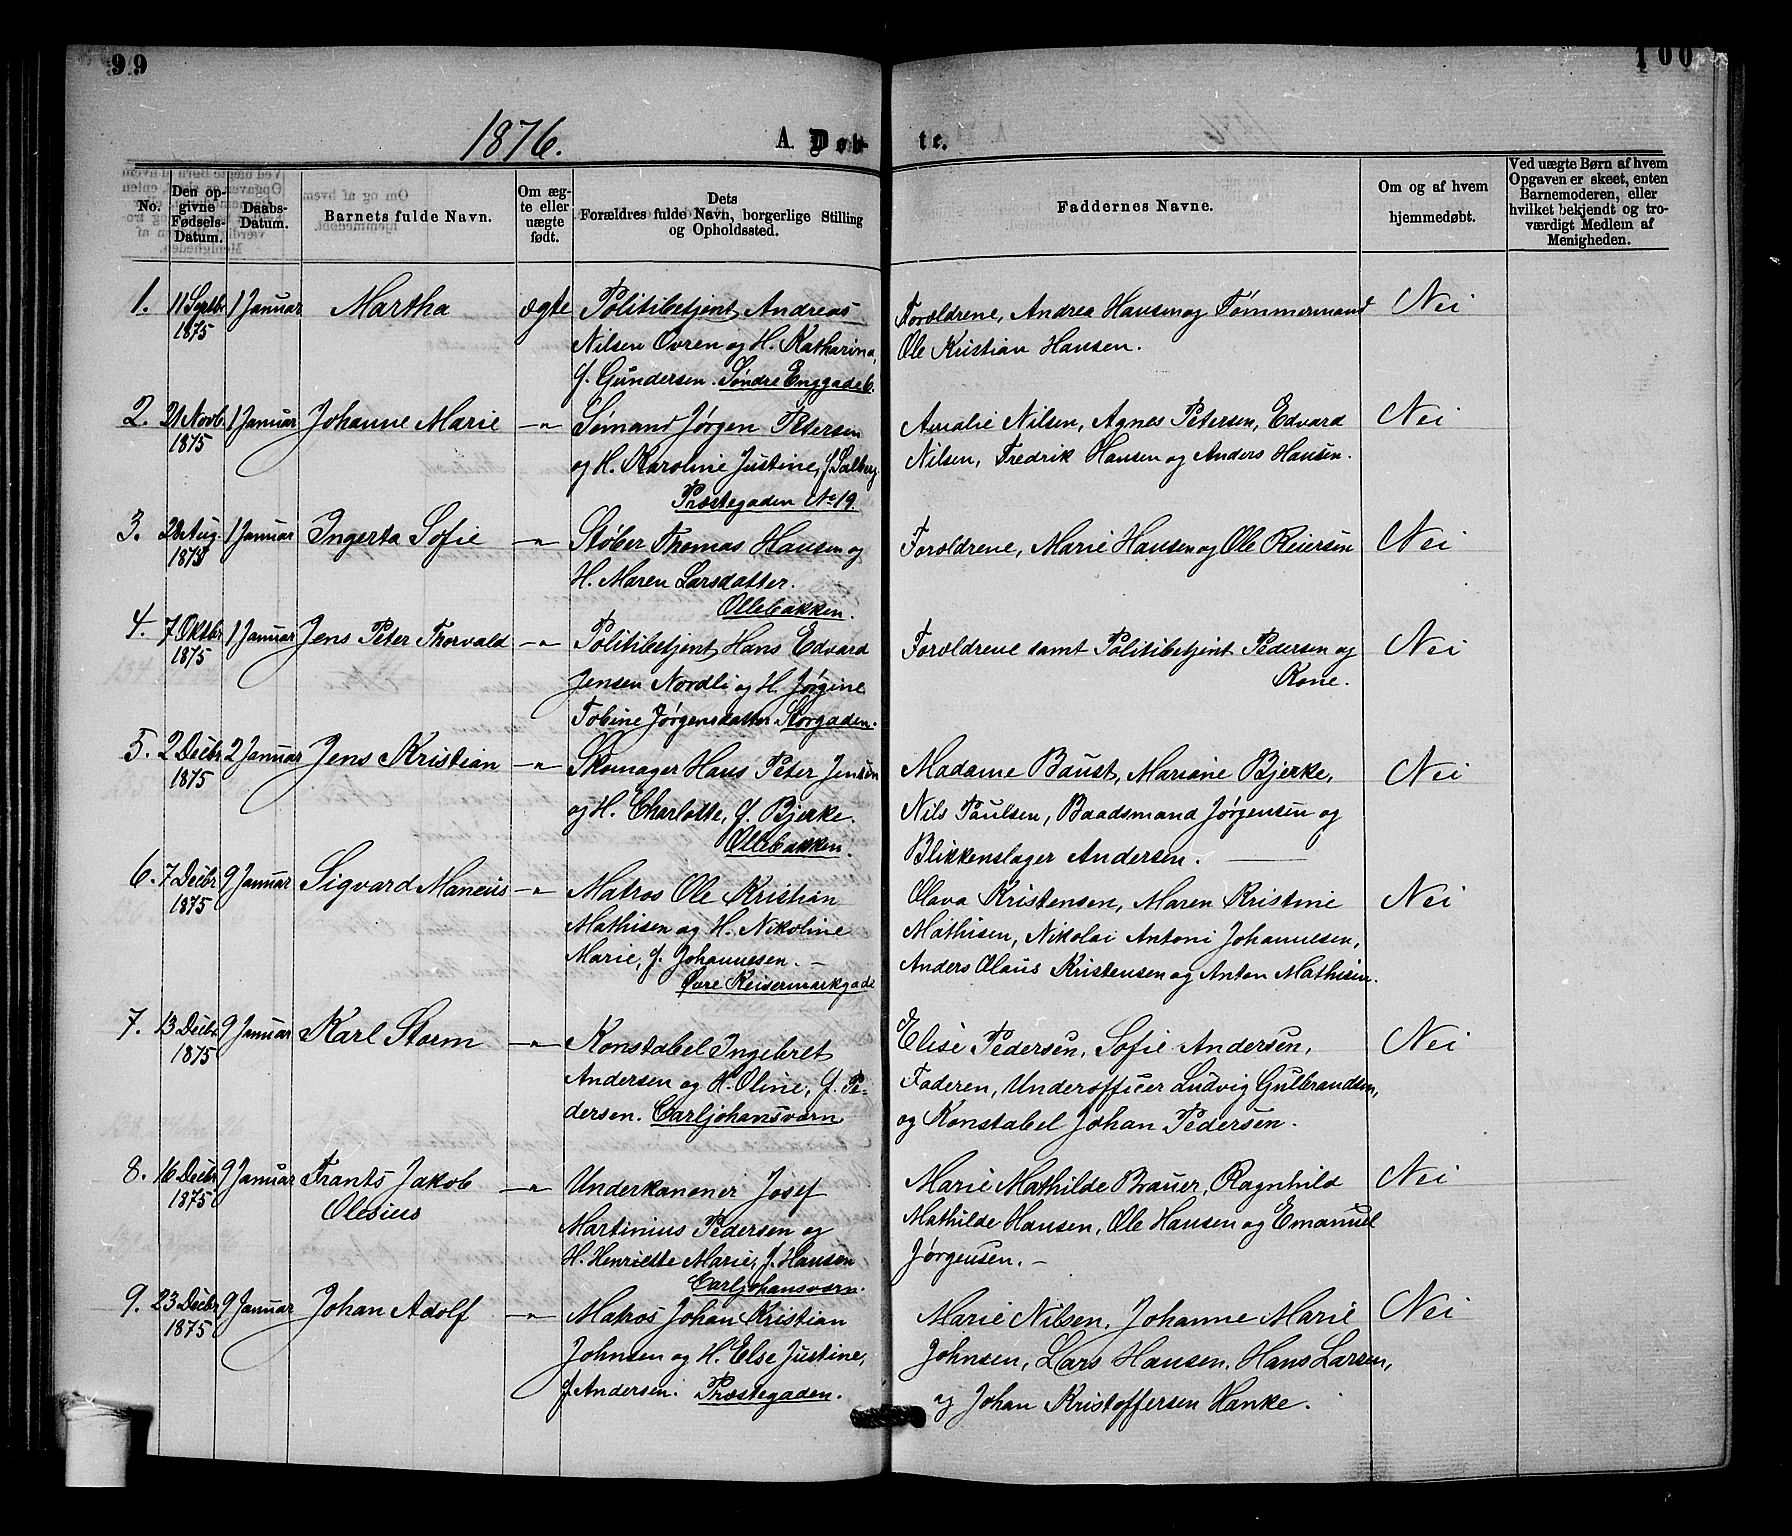 99
100
1876.
A. Døb-
te.
No.
Den op-
givne
Fødsels-
Datum.
Daabs-
Datum.
Barnets fulde Navn.
Om æg-
te eller
uægte
født.
Dets
Forældres fulde Navn, borgerlige Stilling
og Opholdssted.
Faddernes Navne.
Om og af hvem
hjemmedøbt.
Ved uægte Børn af hvem
Opgaven er skeet, enten
Barnemoderen, eller
hvilket bekjendt og tro-
værdigt Medlem af
Menigheden.
1. 11 Septbr 1 Januar Martha ægte Politibetjent Andreas
1875
Nilsen Ovren og H. Katharina,
f. Gundersen. Søndre Enggade 6.
Forældrene, Andrea Hansen og Tømmermand
Ole Kristian Hansen.
Nei
2. 21 Novb. 1 Januar Johanne Marie -"- Sømand Jørgen Petersen
1875
og H. Karoline Justine, f. Solberg
Præstegaden No 19.
Amalie Nilsen, Agnes Petersen, Edvard
Nilsen, Fredrik Hansen og Anders Hansen.
Nei
3. 28 Aug. 1 Januar Ingerta Sofie -"- Støber Thomas Hansen og
1875
H. Maren Larsdatter.
Ollebakken.
Forældrene, Marie Hansen og Ole Reiersen
Nei
4. 7 Oktbr 1 Januar Jens Peter Thorvald -"- Politibetjent Hans Edvard
1875
Jensen Nordli og H. Jørgine
Tobine Jørgensdatter. Storgaden.
Forældrene samt Politibetjent Pedersen og
Kone.
Nei
5. 2 Decbr 2 Januar Jens Kristian -"- Skomager Hans Peter Jensen
1875
og H. Charlotte, f. Bjerke.
Ollebakken.
Madame Baust, Mariane Bjerke,
Nils Paulsen, Baadsmand Jørgensen og
Blikkenslager Andersen.
Nei
6. 7 Decbr 9 Januar Sigvard Mancius -"- Matros Ole Kristian
1875
Mathisen og H. Nikoline
Marie, f. Johannesen. -
Øvre Keisermarkgade
Olava Kristensen, Maren Kristine
Mathisen, Nikolai Antoni Johannesen,
Anders Olaus Kristensen og Anton Mathisen.
Nei
7. 13 Decbr. 9 Januar Karl Storm -"- Konstabel Ingebret
1875
Andersen og H. Oline, f. Pe-
dersen. Carljohansværn
Elise Pedersen, Sofie Andersen,
Faderen, Underofficer Ludvig Gulbrandsen,
og Konstabel Johan Pedersen.
Nei
8. 16 Decbr 9 Januar Frants Jakob -"- Underkanoner Josef
1875
Olesius
Martinius Pedersen og
H. Henriette Marie, f. Hansen
Carljohansværn.
Marie Mathilde Brauer, Ragnhild
Mathilde Hansen, Ole Hansen og Emanuel
Jørgensen. -
Nei
9. 23 Decbr 9 Januar Johan Adolf -"- Matros Johan Kristian
1875
Johnsen og H. Else Justine,
f. Andersen. Præstegaden.
Marie Nilsen, Johanne Marie
Johnsen, Lars Hansen, Hans Larsen,
og Johan Kristoffersen Hanke.
Nei